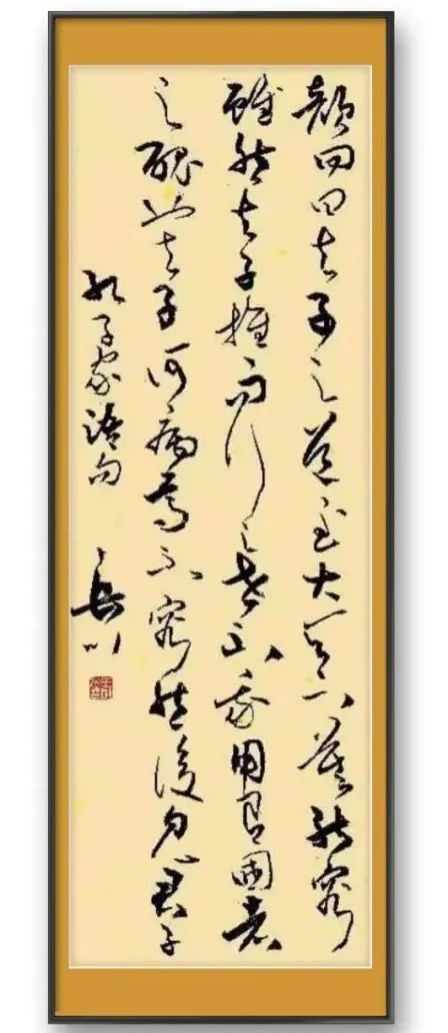 颜回曰夫子之道至大天下莫能容
虽然夫子推而行之世不我用有国者
之丑也夫子何病焉不容然后见君子
孔子家语句
长川